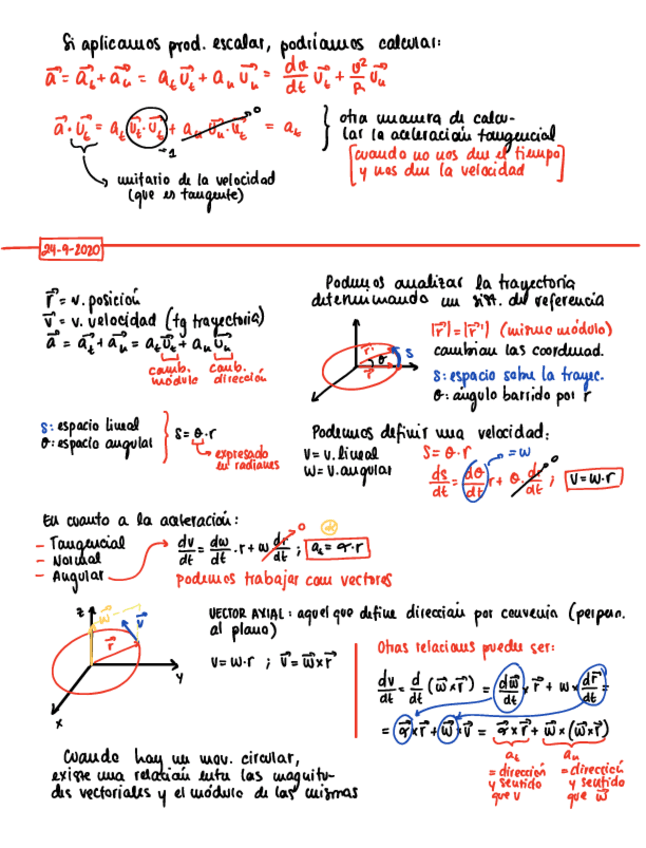 Si aplicamos prod. escalar, podríamos calcular:
a⃗ = a⃗ₜ + a⃗ₙ = aₜ u⃗ₜ + aₙ u⃗ₙ = dv/dt u⃗ₜ + v²/ρ u⃗ₙ
a⃗ · u⃗ₜ = aₜ (u⃗ₜ · u⃗ₜ) + aₙ u⃗ₙ · u⃗ₜ = aₜ
→ 1
0
otra manera de calcu-
lar la aceleración tangencial
[cuando no nos dan el tiempo
y nos dan la velocidad]
unitario de la velocidad
(que es tangente)
24-9-2020
r⃗ = v. posición
v⃗ = v. velocidad (tg trayectoria)
a⃗ = a⃗ₜ + a⃗ₙ = aₜ u⃗ₜ + aₙ u⃗ₙ
camb. módulo
camb. dirección
Podemos analizar la trayectoria
determinando un sist. de referencia
r⃗'
r⃗
θ
s
|r⃗| = |r⃗'| (mismo módulo)
cambian las coordenad.
s: espacio sobre la trayec.
θ: ángulo barrido por r
s: espacio lineal
θ: espacio angular
s = θ · r
expresado
en radianes
Podemos definir una velocidad:
v = v. lineal
w = v. angular
s = θ · r
= w
ds/dt = dθ/dt r + θ · dr/dt ; v = w · r
0
En cuanto a la aceleración:
- Tangencial
- Normal
- Angular
α
dv/dt = dw/dt · r + w dr/dt ; aₜ = α · r
0
Podemos trabajar con vectores
z
w⃗
v⃗
r⃗
y
x
VECTOR AXIAL: aquel que define dirección por convenio (perpen.
al plano)
v = w · r ; v⃗ = w⃗ × r⃗
Otras relaciones pueden ser:
dv⃗/dt = d/dt (w⃗ × r⃗) = dw⃗/dt × r⃗ + w × dr⃗/dt =
= α⃗ × r⃗ + w⃗ × v⃗ = α⃗ × r⃗ + w⃗ × (w⃗ × r⃗)
aₜ
= dirección
y sentido
que v
aₙ
= dirección
y sentido
que w⃗
Cuando hay un mov. circular,
existe una relación entre las magnitu-
des vectoriales y el módulo de las mismas